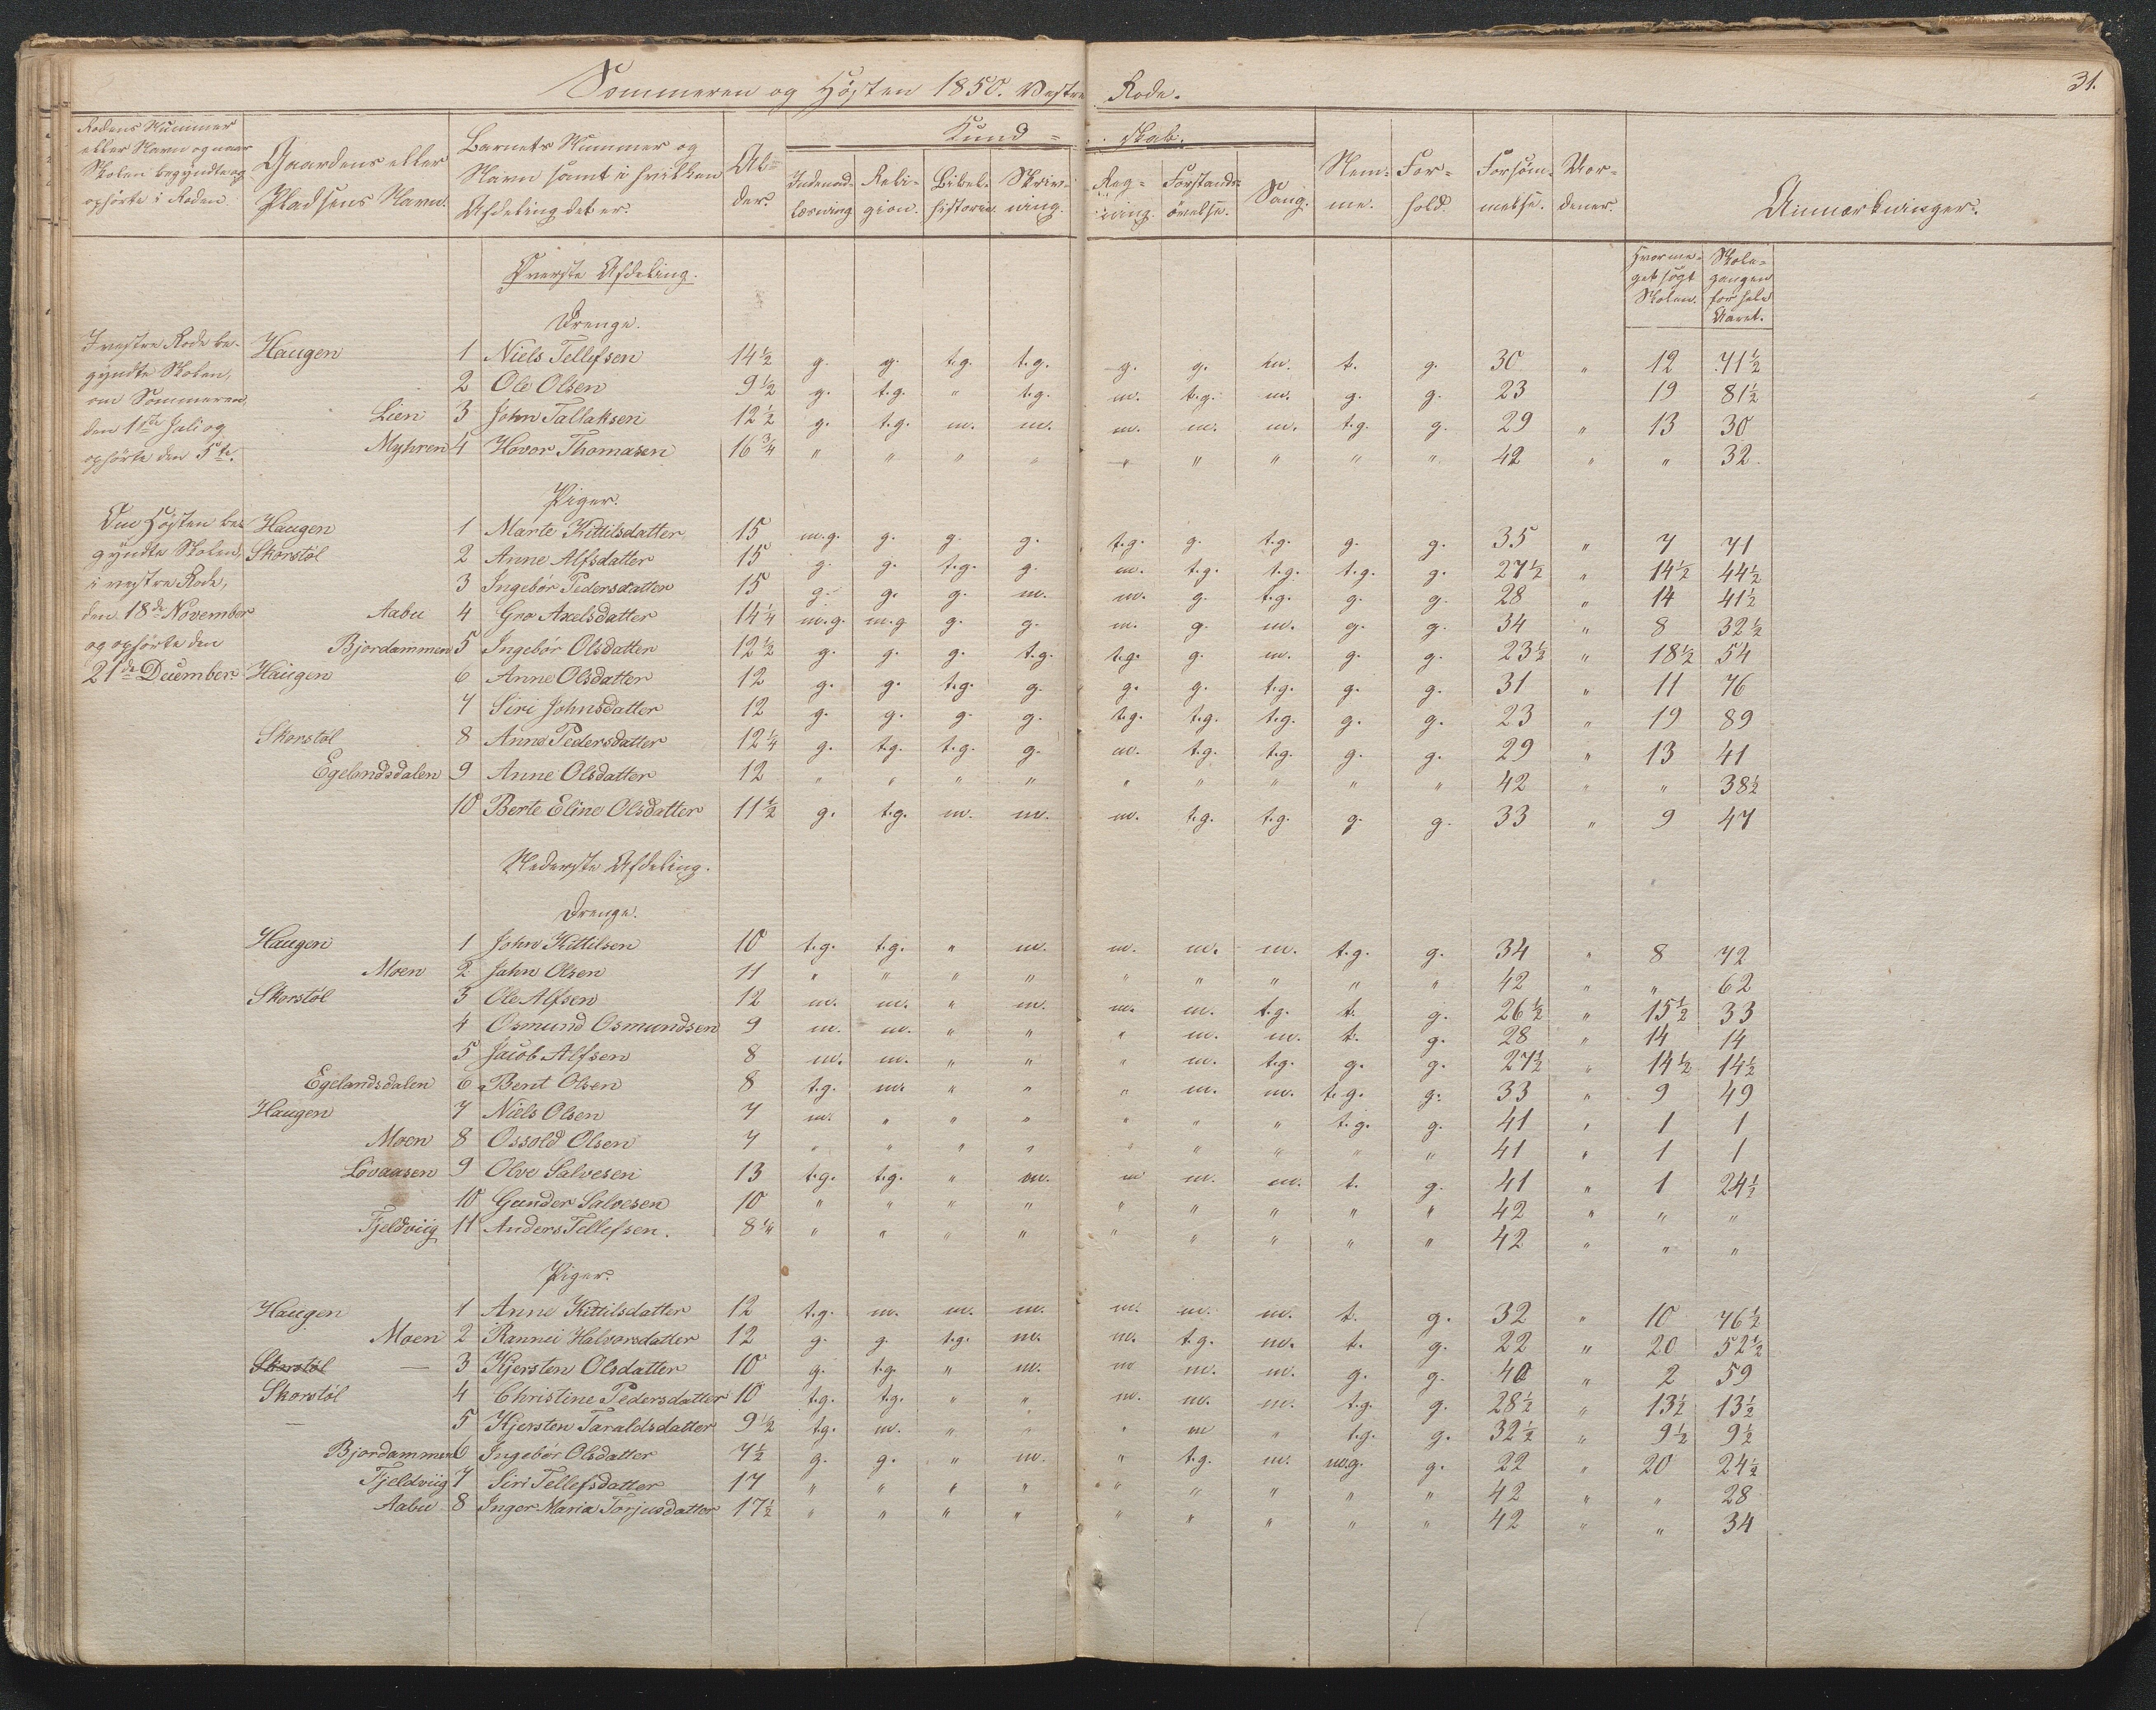 Sommeren og Høsten 1850. Vestre Rode.
31.
Rodens Nummer eller Navn og naar Skolen begyndte og ophørte i Roden.
Gaardens eller Pladsens Navn.
Barnets Nummer og Navn samt i hvilken Afdeling det er.
Alder.
Kundskab.
Indenadlæsning
Religion.
Bibelhistorie.
Skrivning.
Regning.
Forstandsøvelse.
Sang.
Nemme.
Forhold.
Forsømmelse.
Mordener.
Anmærkninger.
Hvormeget søgt Skolen.
Skolegangen for hele Aaret.
Øverste Afdeling.
Drenge.
I vestre Rode begyndte Skolen, om Sommeren, den 1ste Juli og ophørte den 5te.
Haugen 1 Niels Tellefsen 14½ g. g. t.g. t.g. g. g. m. t. g. 30 " 12 71½
2 Ole Olsen 9½ g. t.g. " t.g. m. t.g. m. g. g. 23 19 81½
Lien 3 John Tallaksen 12½ g. t.g. m. m. m. m. m. t.g. g. 29 " 13 30
Myhren 4 Hovor Thomasen 16¾ " " " " " " " " " 42 " " 32.
Piger.
Om Høsten begyndte Skolen, i vestre Rode, den 18de November og ophørte den 21de December.
Haugen 1 Marte Kittilsdatter 15 m.g. g. g. g. t.g. g. t.g. g. g. 35 " 7 71
Skorstøl 2 Anne Alfsdatter 15 g. g. t.g. g. m. t.g. t.g. t.g. g. 27½ " 14½ 44½
3 Ingebør Pedersdatter 15 g. g. g. m. m. g. t.g. g. g. 28 " 14 41½
Aabu 4 Gro Axelsdatter 14¼ m.g. m.g g. g. m. g. m. g. g. 34 " 8 32½
Bjordammen 5 Ingebør Olsdatter 12½ g. g. g. t.g. t.g. g. m. g. g. 23½ " 18½ 54
Haugen 6 Anne Olsdatter 12 g. g. t.g. g. g. g. t.g. g. g. 31 " 11 76
7 Siri Johnsdatter 12 g. g. g. g. t.g. t.g. t.g. g. g. 23 " 19 89
Skorstøl 8 Anne Pedersdatter 12¼ g. t.g. t.g. g. m. t.g. t.g. g. g. 29 " 13 41
Egelandsdalen 9 Anne Olsdatter 12 " " " " " " " " " 42 " " 38½
10 Berte Eline Olsdatter 11½ g. t.g. m. m. m. t.g. t.g. g. g. 33 " 9 47
Nederste Afdeling.
Drenge.
Haugen 1 John Kittilsen 10 t.g. t.g. " m. m. m. m. t.g. g. 34 " 8 72
Moen 2 John Olsen 11 " " " " " " " " " 42 " " 62
Skorstøl 3 Ole Alfsen 12 m. m. " m. m. m. t.g. t. g. 26½ " 15½ 33
4 Osmund Osmundsen 9 m. m. " " " m. m. t. g. 28 " 14 14
5 Jacob Alfsen 8 m. m. " " " m. t.g. g. g. 27½ " 14½ 14½
Egelandsdalen 6 Bent Olsen 8 t.g. m. " " " m. m. t.g. g. 33 " 9 49
Haugen 7 Niels Olsen 7 m. " " " " " " t.g. g. 41 " 1 1
Moen 8 Ossold Olsen 7 " " " " " " " " " 41 " 1 1
Løvaasen 9 Olve Salvesen 13 t.g. t.g. " m. m m. m. t. g. 41 " 1 24½
10 Gunder Salvesen 10 " " " " " " " " " 42 " " "
Fjeldviig 11 Anders Tellefsen. 8¼ " " " " " " " " " 42 " " "
Piger.
Haugen 1 Anne Kittilsdatter 12 t.g. m. m. m. m. m. m. t. g. 32 " 10 76½
Moen 2 Rannei Halvorsdatter 12 g. g. t.g. m. m. t.g. m. t. g. 22 " 20 52½
Skorstøl — 3 Kjersten Olsdatter 10 g. t.g. " m. m m. m. g. g. 40 " 2 59
Skorstøl 4 Christine Pedersdatter 10 t.g. t.g. " " m. m. m. t.g. g. 28½ " 13½ 13½
— 5 Kjersten Taraldsdatter 9½ t.g. m. " " " m " t.g. g. 32½ " 9½ 9½
Bjordammen 6 Ingebør Olsdatter 7½ g. g. " m. " t.g. m. m.g. g. 22 " 20 24½
Fjeldviig 7 Siri Tellefsdatter 17 " " " " " " " " " 42 " " 28
Aabu 8 Inger Maria Torjusdatter 17½ " " " " " " " " " 42 " " 34